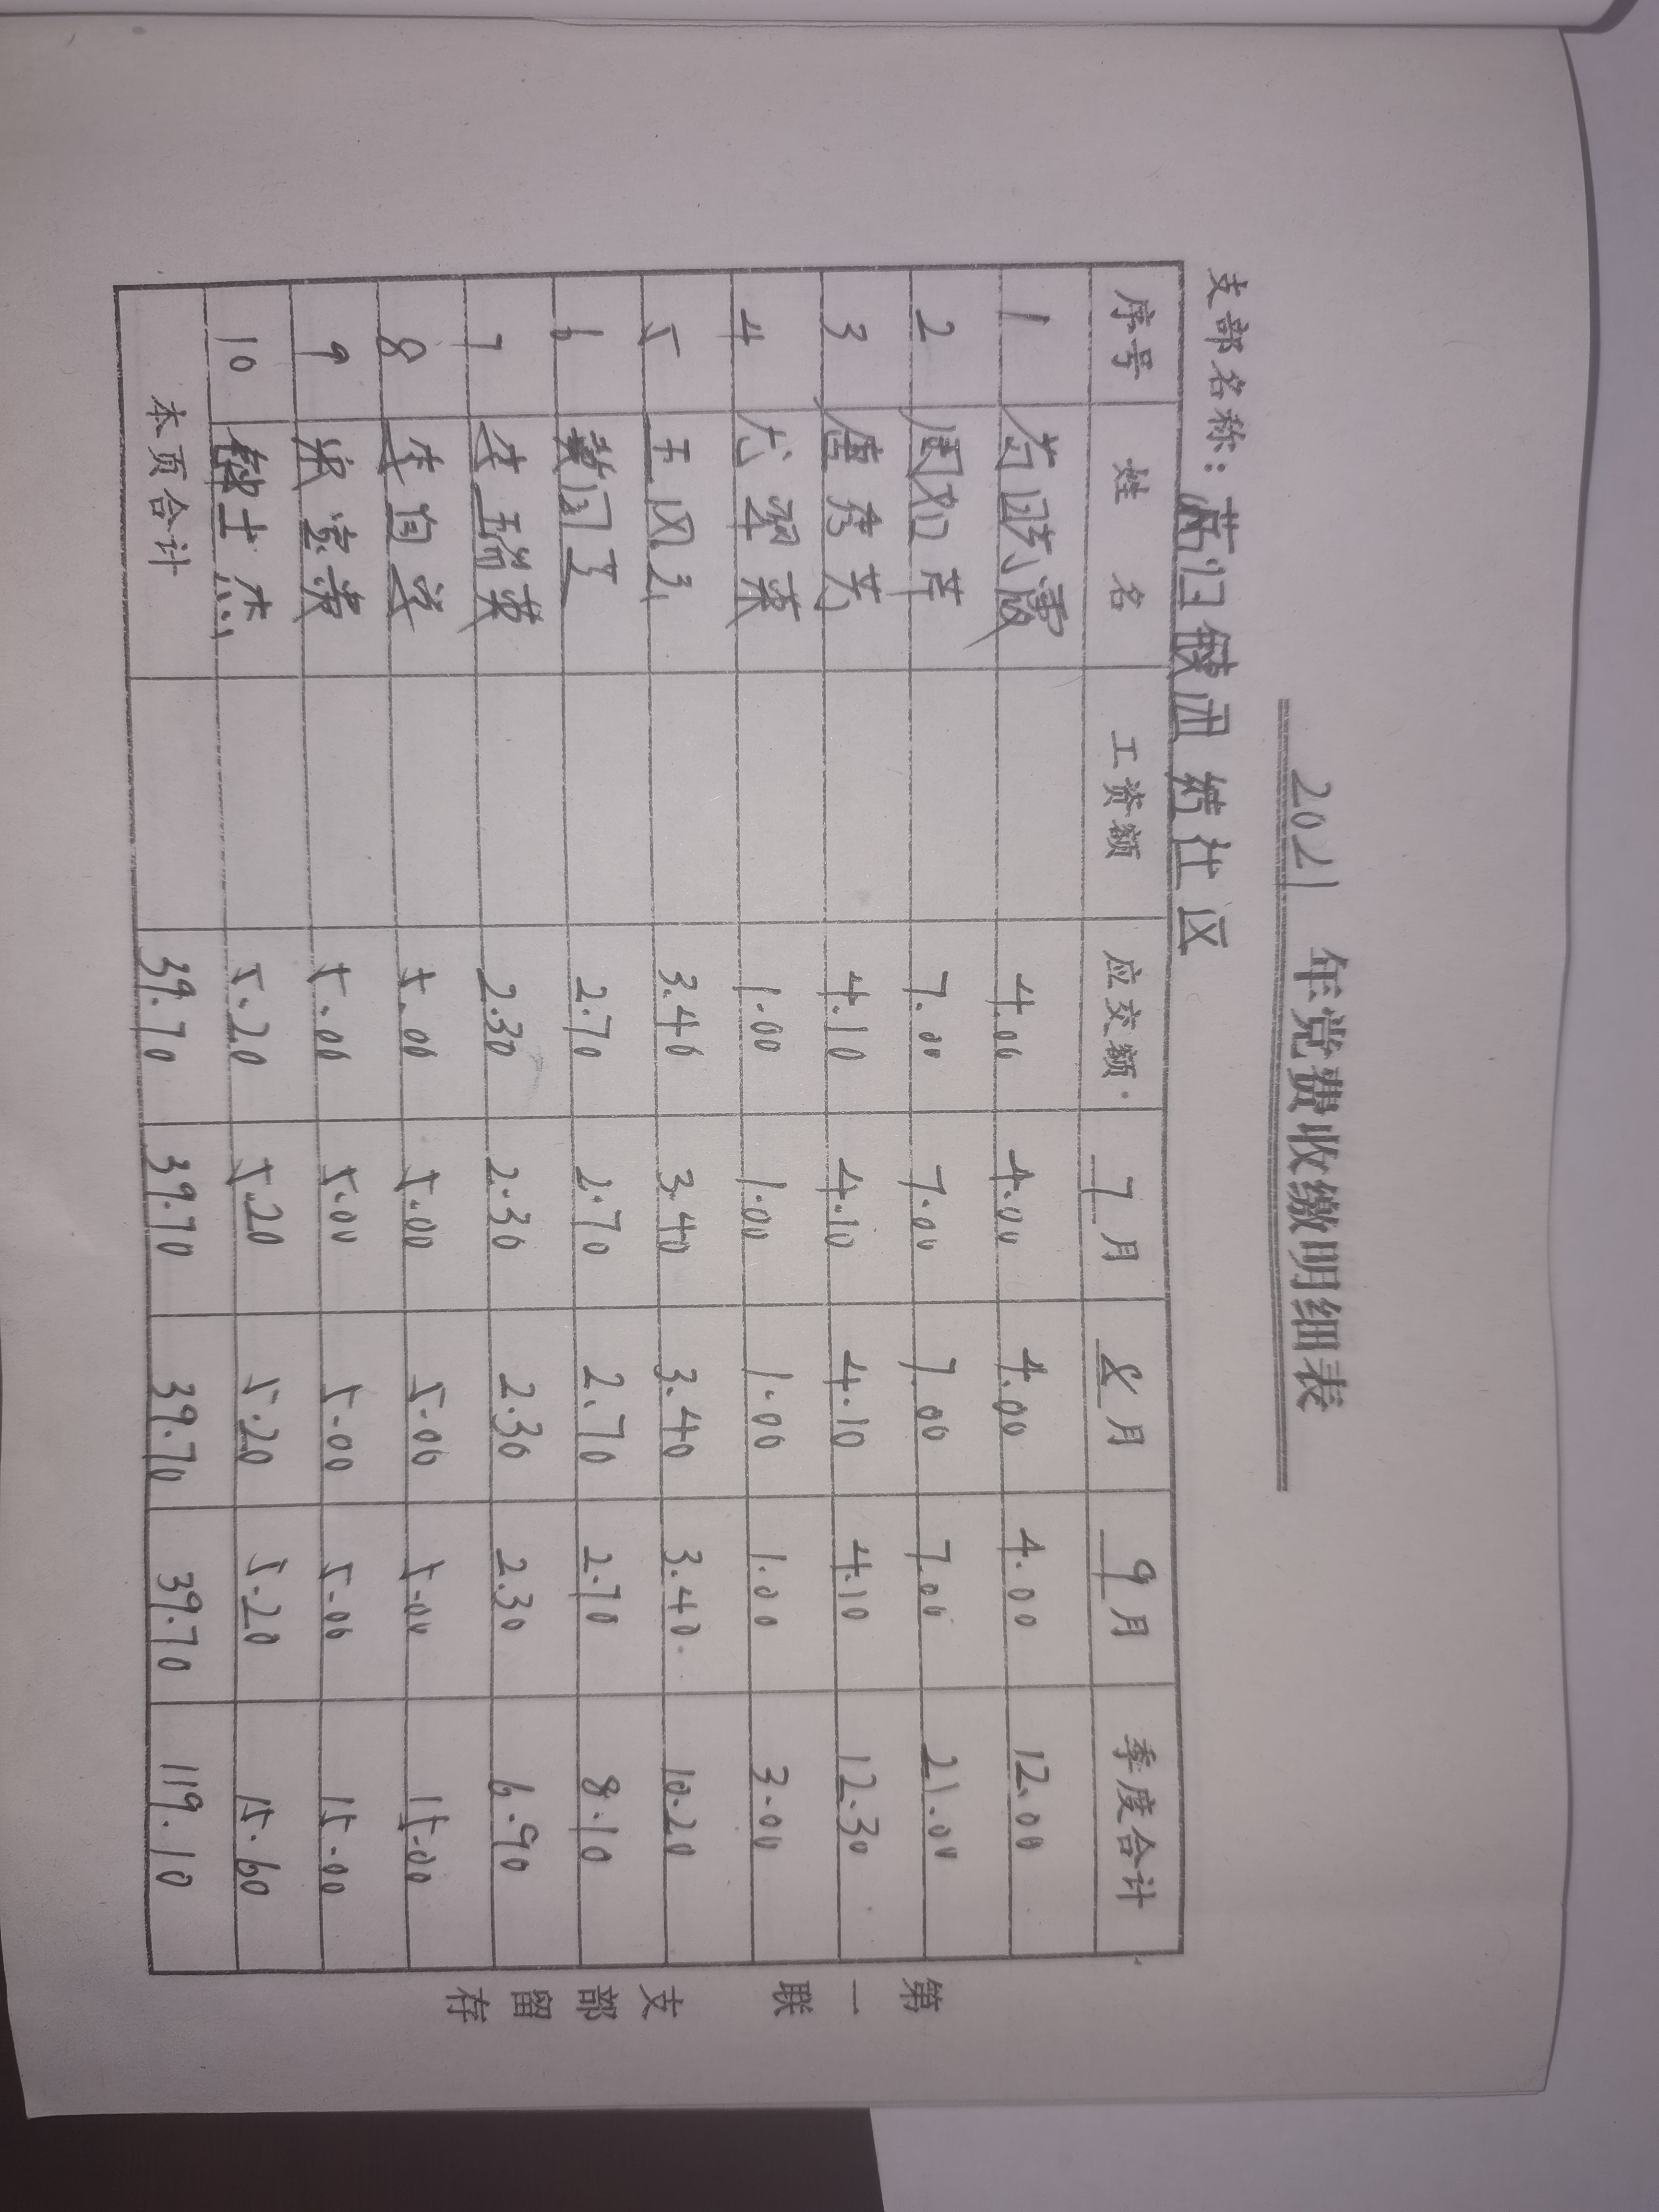 2021 年党费收缴明细表
支部名称: 社区
序号 姓名 工资额 应交额 7月 8月 9月 季度合计
1 4.00 4.00 4.00 4.00 12.00
2 周 7.00 7.00 7.00 7.00 21.00
3 唐秀芳 4.10 4.10 4.10 4.10 12.30
4 1.00 1.00 1.00 1.00 3.00
5 王凤 3.40 3.40 3.40 3.40 10.20
6 2.70 2.70 2.70 2.70 8.10
7 李瑞英 2.30 2.30 2.30 2.30 6.90
8 李自 5.00 5.00 5.00 5.00 15.00
9 5.00 5.00 5.00 5.00 15.00
10 士杰 5.20 5.20 5.20 5.20 15.60
本页合计 39.70 39.70 39.70 39.70 119.10
第一联 支部留存